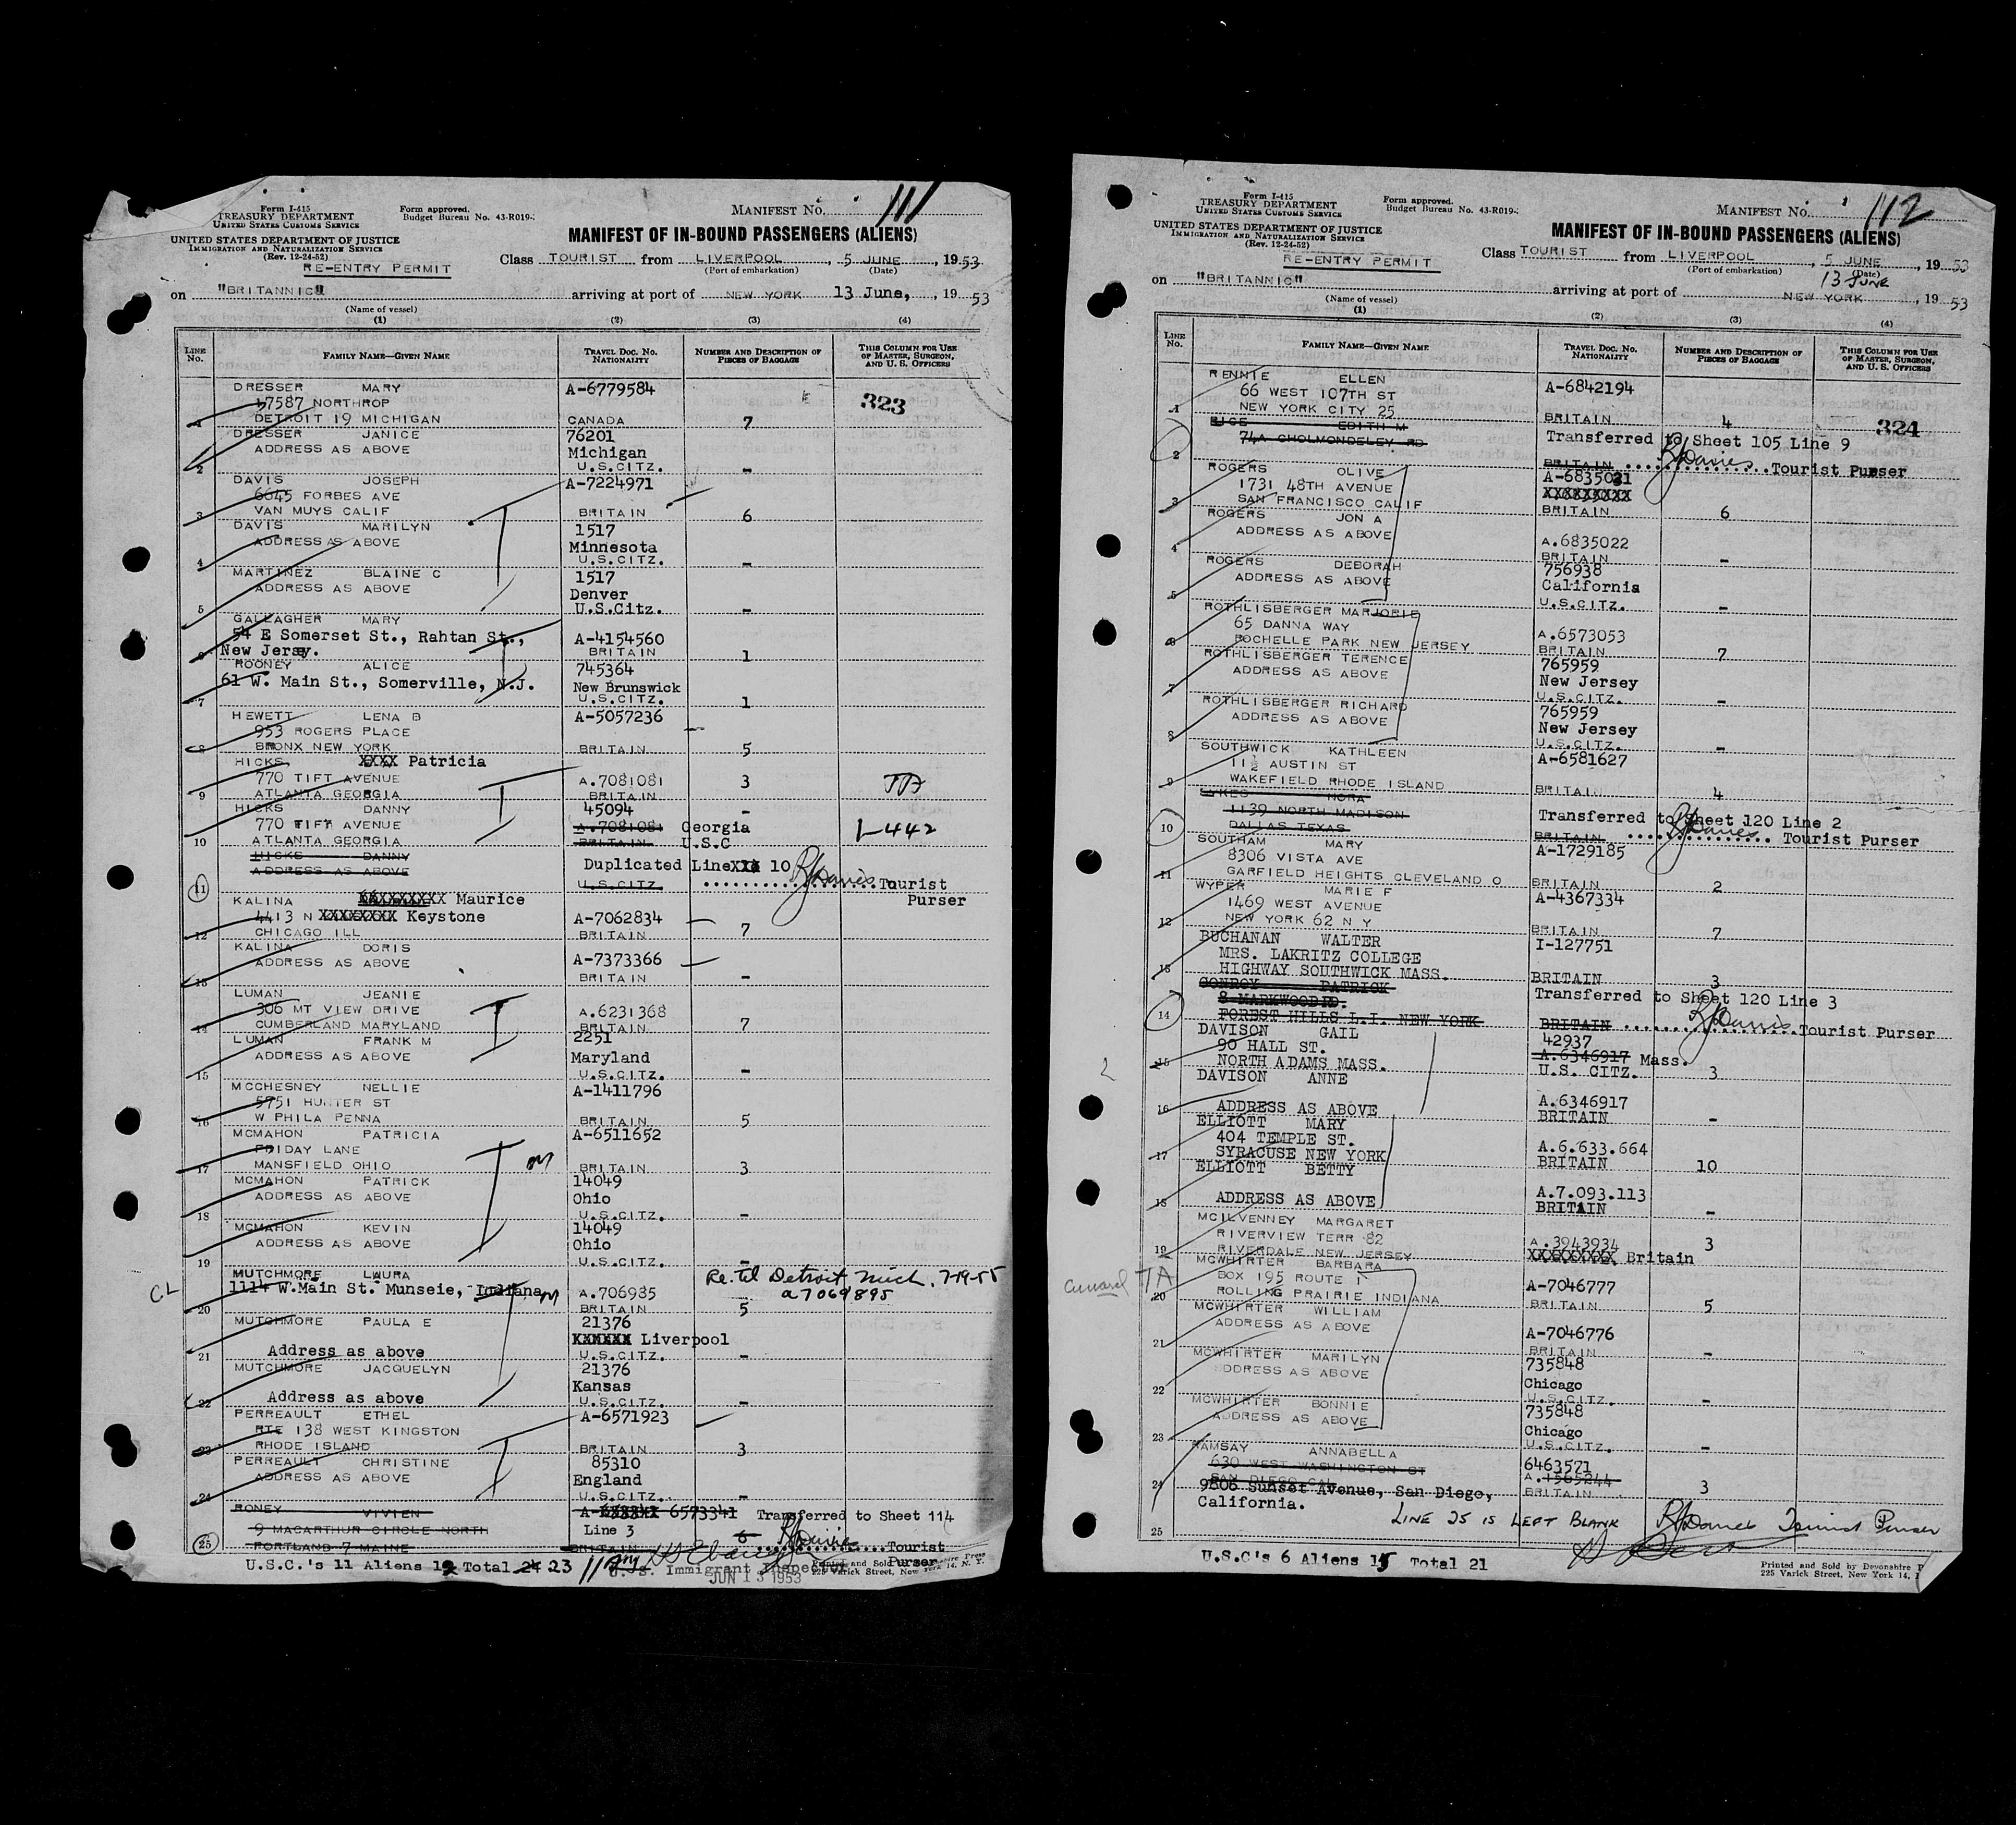 Form I-415
TREASURY DEPARTMENT
UNITED STATES CUSTOMS SERVICE
UNITED STATES DEPARTMENT OF JUSTICE
IMMIGRATION AND NATURALIZATION SERVICE
(Rev. 12-24-52)
RE-ENTRY PERMIT
Form approved.
Budget Bureau No. 43-R019-
MANIFEST No. 111
MANIFEST OF IN-BOUND PASSENGERS (ALIENS)
Class TOURIST from LIVERPOOL, 5 JUNE, 1953
(Port of embarkation) (Date)
on "BRITANNIC" arriving at port of NEW YORK 13 June, 1953
(Name of vessel)
(1) (2) (3) (4)
LINE No. FAMILY NAME—GIVEN NAME TRAVEL DOC. No. NATIONALITY NUMBER AND DESCRIPTION OF PIECES OF BAGGAGE THIS COLUMN FOR USE OF MASTER, SURGEON, AND U. S. OFFICERS
DRESSER MARY A-6779584
17587 NORTHROP 323
1 DETROIT 19 MICHIGAN CANADA 7
DRESSER JANICE 76201
ADDRESS AS ABOVE Michigan
2 U.S.CITZ. -
DAVIS JOSEPH A-7224971
6645 FORBES AVE
3 VAN MUYS CALIF BRITAIN 6
DAVIS MARILYN 1517
ADDRESS AS ABOVE Minnesota
4 U.S.CITZ. -
MARTINEZ BLAINE C 1517
ADDRESS AS ABOVE Denver
5 U.S.Citz. -
GALLAGHER MARY
54 E Somerset St., Rahtan St., A-4154560
6 New Jersy. BRITAIN 1
ROONEY ALICE 745364
61 W. Main St., Somerville, N.J. New Brunswick
7 U.S.CITZ. 1
HEWETT LENA B A-5057236
953 ROGERS PLACE
8 BRONX NEW YORK BRITAIN 5
HICKS XXXX Patricia
770 TIFT AVENUE A.7081081 3
9 ATLANTA GEORGIA BRITAIN
HICKS DANNY 45094 -
770 TIFT AVENUE A.7081081 Georgia 1-442
10 ATLANTA GEORGIA BRITAIN U.S.C
HICKS DANNY Duplicated Line XXX 10
ADDRESS AS ABOVE
11 U.S.CITZ. Tourist Purser
KALINA XXXXXXXXX Maurice
4413 N XXXXXXXX Keystone A-7062834
12 CHICAGO ILL BRITAIN 7
KALINA DORIS
ADDRESS AS ABOVE A-7373366
13 BRITAIN -
LUMAN JEANIE
306 MT VIEW DRIVE A.6231368
14 CUMBERLAND MARYLAND BRITAIN 7
LUMAN FRANK M 2251
ADDRESS AS ABOVE Maryland
15 U.S.CITZ. -
MCCHESNEY NELLIE A-1411796
5751 HUNTER ST
16 W PHILA PENNA BRITAIN 5
MCMAHON PATRICIA A-6511652
FRIDAY LANE
17 MANSFIELD OHIO BRITAIN 3
MCMAHON PATRICK 14049
ADDRESS AS ABOVE Ohio
18 U.S.CITZ. -
MCMAHON KEVIN 14049
ADDRESS AS ABOVE Ohio
19 U.S.CITZ. -
MUTCHMORE LWURA Re. Tel Detroit Mich. 7-19-55
CL 1114 W.Main St. Munseie, Indiana A.706985 a7069895
20 BRITAIN 5
MUTCHMORE PAULA E 21376
XXXXXX Liverpool
21 Address as above U.S.CITZ. -
MUTCHMORE JACQUELYN 21376
Kansas
22 Address as above U.S.CITZ. -
PERREAULT ETHEL A-6571923
RTE 138 WEST KINGSTON
23 RHODE ISLAND BRITAIN 3
PERREAULT CHRISTINE 85310
ADDRESS AS ABOVE England
24 U.S.CITZ. -
RONEY VIVIEN 6573341 Transferred to Sheet 114
9 MACARTHUR CIRCLE NORTH Line 3
25 PORTLAND 7 MAINE BRITAIN Tourist Purser
U.S.C.'s 11 Aliens Total 24 23 U.S. Immigrant Inspector
JUN 13 1953
Printed and Sold by Devonshire Press
225 Varick Street, New York 14, N. Y.
Form I-415
TREASURY DEPARTMENT
UNITED STATES CUSTOMS SERVICE
UNITED STATES DEPARTMENT OF JUSTICE
IMMIGRATION AND NATURALIZATION SERVICE
(Rev. 12-24-52)
RE-ENTRY PERMIT
Form approved.
Budget Bureau No. 43-R019-
MANIFEST No. 112
MANIFEST OF IN-BOUND PASSENGERS (ALIENS)
Class TOURIST from LIVERPOOL, 5 JUNE, 1953
(Port of embarkation) (Date)
on "BRITANNIC" arriving at port of NEW YORK 13 JUNE, 1953
(Name of vessel)
(1) (2) (3) (4)
LINE No. FAMILY NAME—GIVEN NAME TRAVEL DOC. No. NATIONALITY NUMBER AND DESCRIPTION OF PIECES OF BAGGAGE THIS COLUMN FOR USE OF MASTER, SURGEON, AND U. S. OFFICERS
RENNIE ELLEN A-6842194
66 WEST 107TH ST
1 NEW YORK CITY 25 BRITAIN 4 324
EDITH M Transferred to Sheet 105 Line 9
74A CHOLMONDELEY RD
2 BRITAIN Tourist Purser
ROGERS OLIVE A-6835021
1731 48TH AVENUE XXXXXXXXX
3 SAN FRANCISCO CALIF BRITAIN 6
ROGERS JON A
ADDRESS AS ABOVE A.6835022
4 BRITAIN -
ROGERS DEBORAH 756938
ADDRESS AS ABOVE California
5 U.S.CITZ. -
ROTHLISBERGER MARJORIE
65 DANNA WAY A.6573053
6 ROCHELLE PARK NEW JERSEY BRITAIN 7
ROTHLISBERGER TERENCE 765959
ADDRESS AS ABOVE New Jersey
7 U.S.CITZ. -
ROTHLISBERGER RICHARD 765959
ADDRESS AS ABOVE New Jersey
8 U.S.CITZ. -
SOUTHWICK KATHLEEN A-6581627
11½ AUSTIN ST
9 WAKEFIELD RHODE ISLAND BRITAIN 4
SYKES NORA
1139 NORTH MADISON Transferred to Sheet 120 Line 2
10 DALLAS TEXAS BRITAIN Tourist Purser
SOUTHAM MARY A-1729185
8306 VISTA AVE
11 GARFIELD HEIGHTS CLEVELAND O BRITAIN 2
WYPER MARIE F A-4367334
1469 WEST AVENUE
12 NEW YORK 62 N Y BRITAIN 7
BUCHANAN WALTER I-127751
MRS. LAKRITZ COLLEGE
13 HIGHWAY SOUTHWICK MASS. BRITAIN 3
CONROY PATRICK Transferred to Sheet 120 Line 3
8 MARKWOOD RD.
14 FOREST HILLS L.I. NEW YORK BRITAIN Tourist Purser
DAVISON GAIL 42937
90 HALL ST. A.6346917 Mass.
15 NORTH ADAMS MASS. U.S. CITZ. 3
DAVISON ANNE
A.6346917
16 ADDRESS AS ABOVE BRITAIN -
ELLIOTT MARY
404 TEMPLE ST. A.6.633.664
17 SYRACUSE NEW YORK BRITAIN 10
ELLIOTT BETTY
A.7.093.113
18 ADDRESS AS ABOVE BRITAIN -
MCILVENNEY MARGARET
RIVERVIEW TERR 82 A.3943934 3
19 RIVERDALE NEW JERSEY XXXXXXXXX Britain
MCWHIRTER BARBARA
Cunard TA BOX 195 ROUTE 1 A-7046777
20 ROLLING PRAIRIE INDIANA BRITAIN 5
MCWHIRTER WILLIAM
ADDRESS AS ABOVE A-7046776
21 BRITAIN -
MCWHIRTER MARILYN 735848
ADDRESS AS ABOVE Chicago
22 U.S.CITZ. -
MCWHIRTER BONNIE 735848
ADDRESS AS ABOVE Chicago
23 U.S.CITZ. -
RAMSAY ANNABELLA 6463571
630 WEST WASHINGTON ST A.1565244
SAN DIEGO CAL
24 9806 Sunset Avenue, San Diego, BRITAIN 3
California.
25 LINE 25 IS LEFT BLANK Tourist Purser
U.S.C's 6 Aliens 15 Total 21
Printed and Sold by Devonshire
225 Varick Street, New York 14,